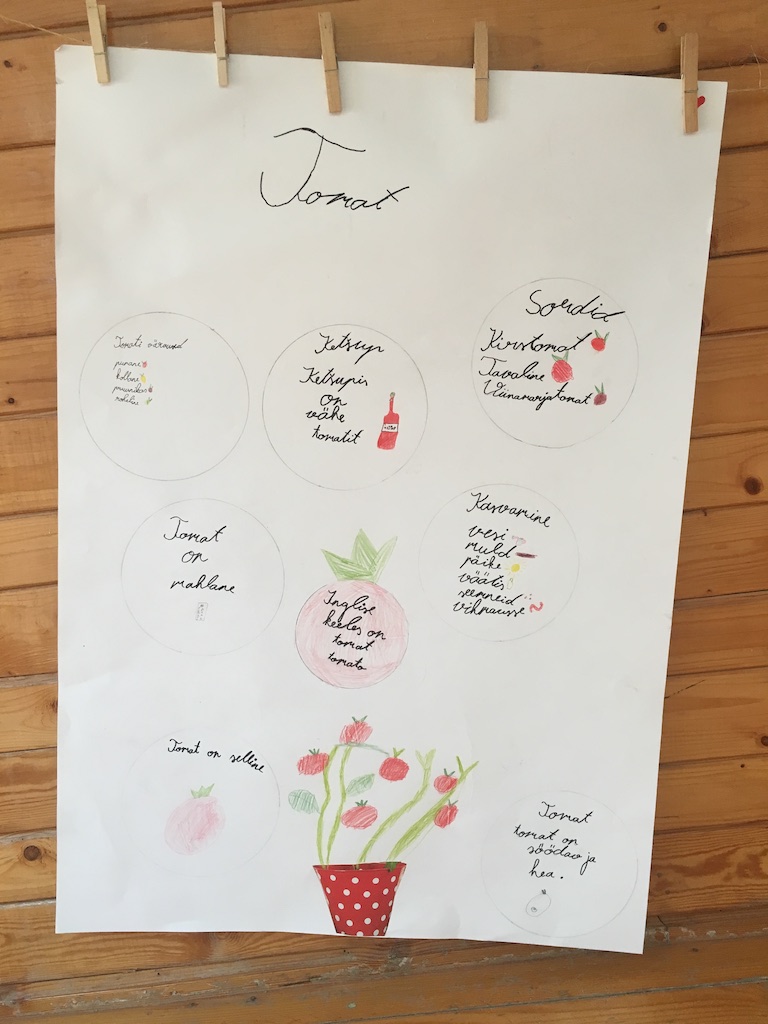 Tomat
Tomati värvused
punane
kollane
roheline
Ketsup
Ketsupis
on
vähe
tomatit
Sordid
Kirstomat
Tavaline
Viinamarjatomat
Tomat
on
mahlane
Inglise
keeles on
tomat
tomato
Kasvamine
vesi
muld
päike
väätis
seemneid
vihmausse
Tomat on selline
Tomat
tomat on
söödav ja
hea.